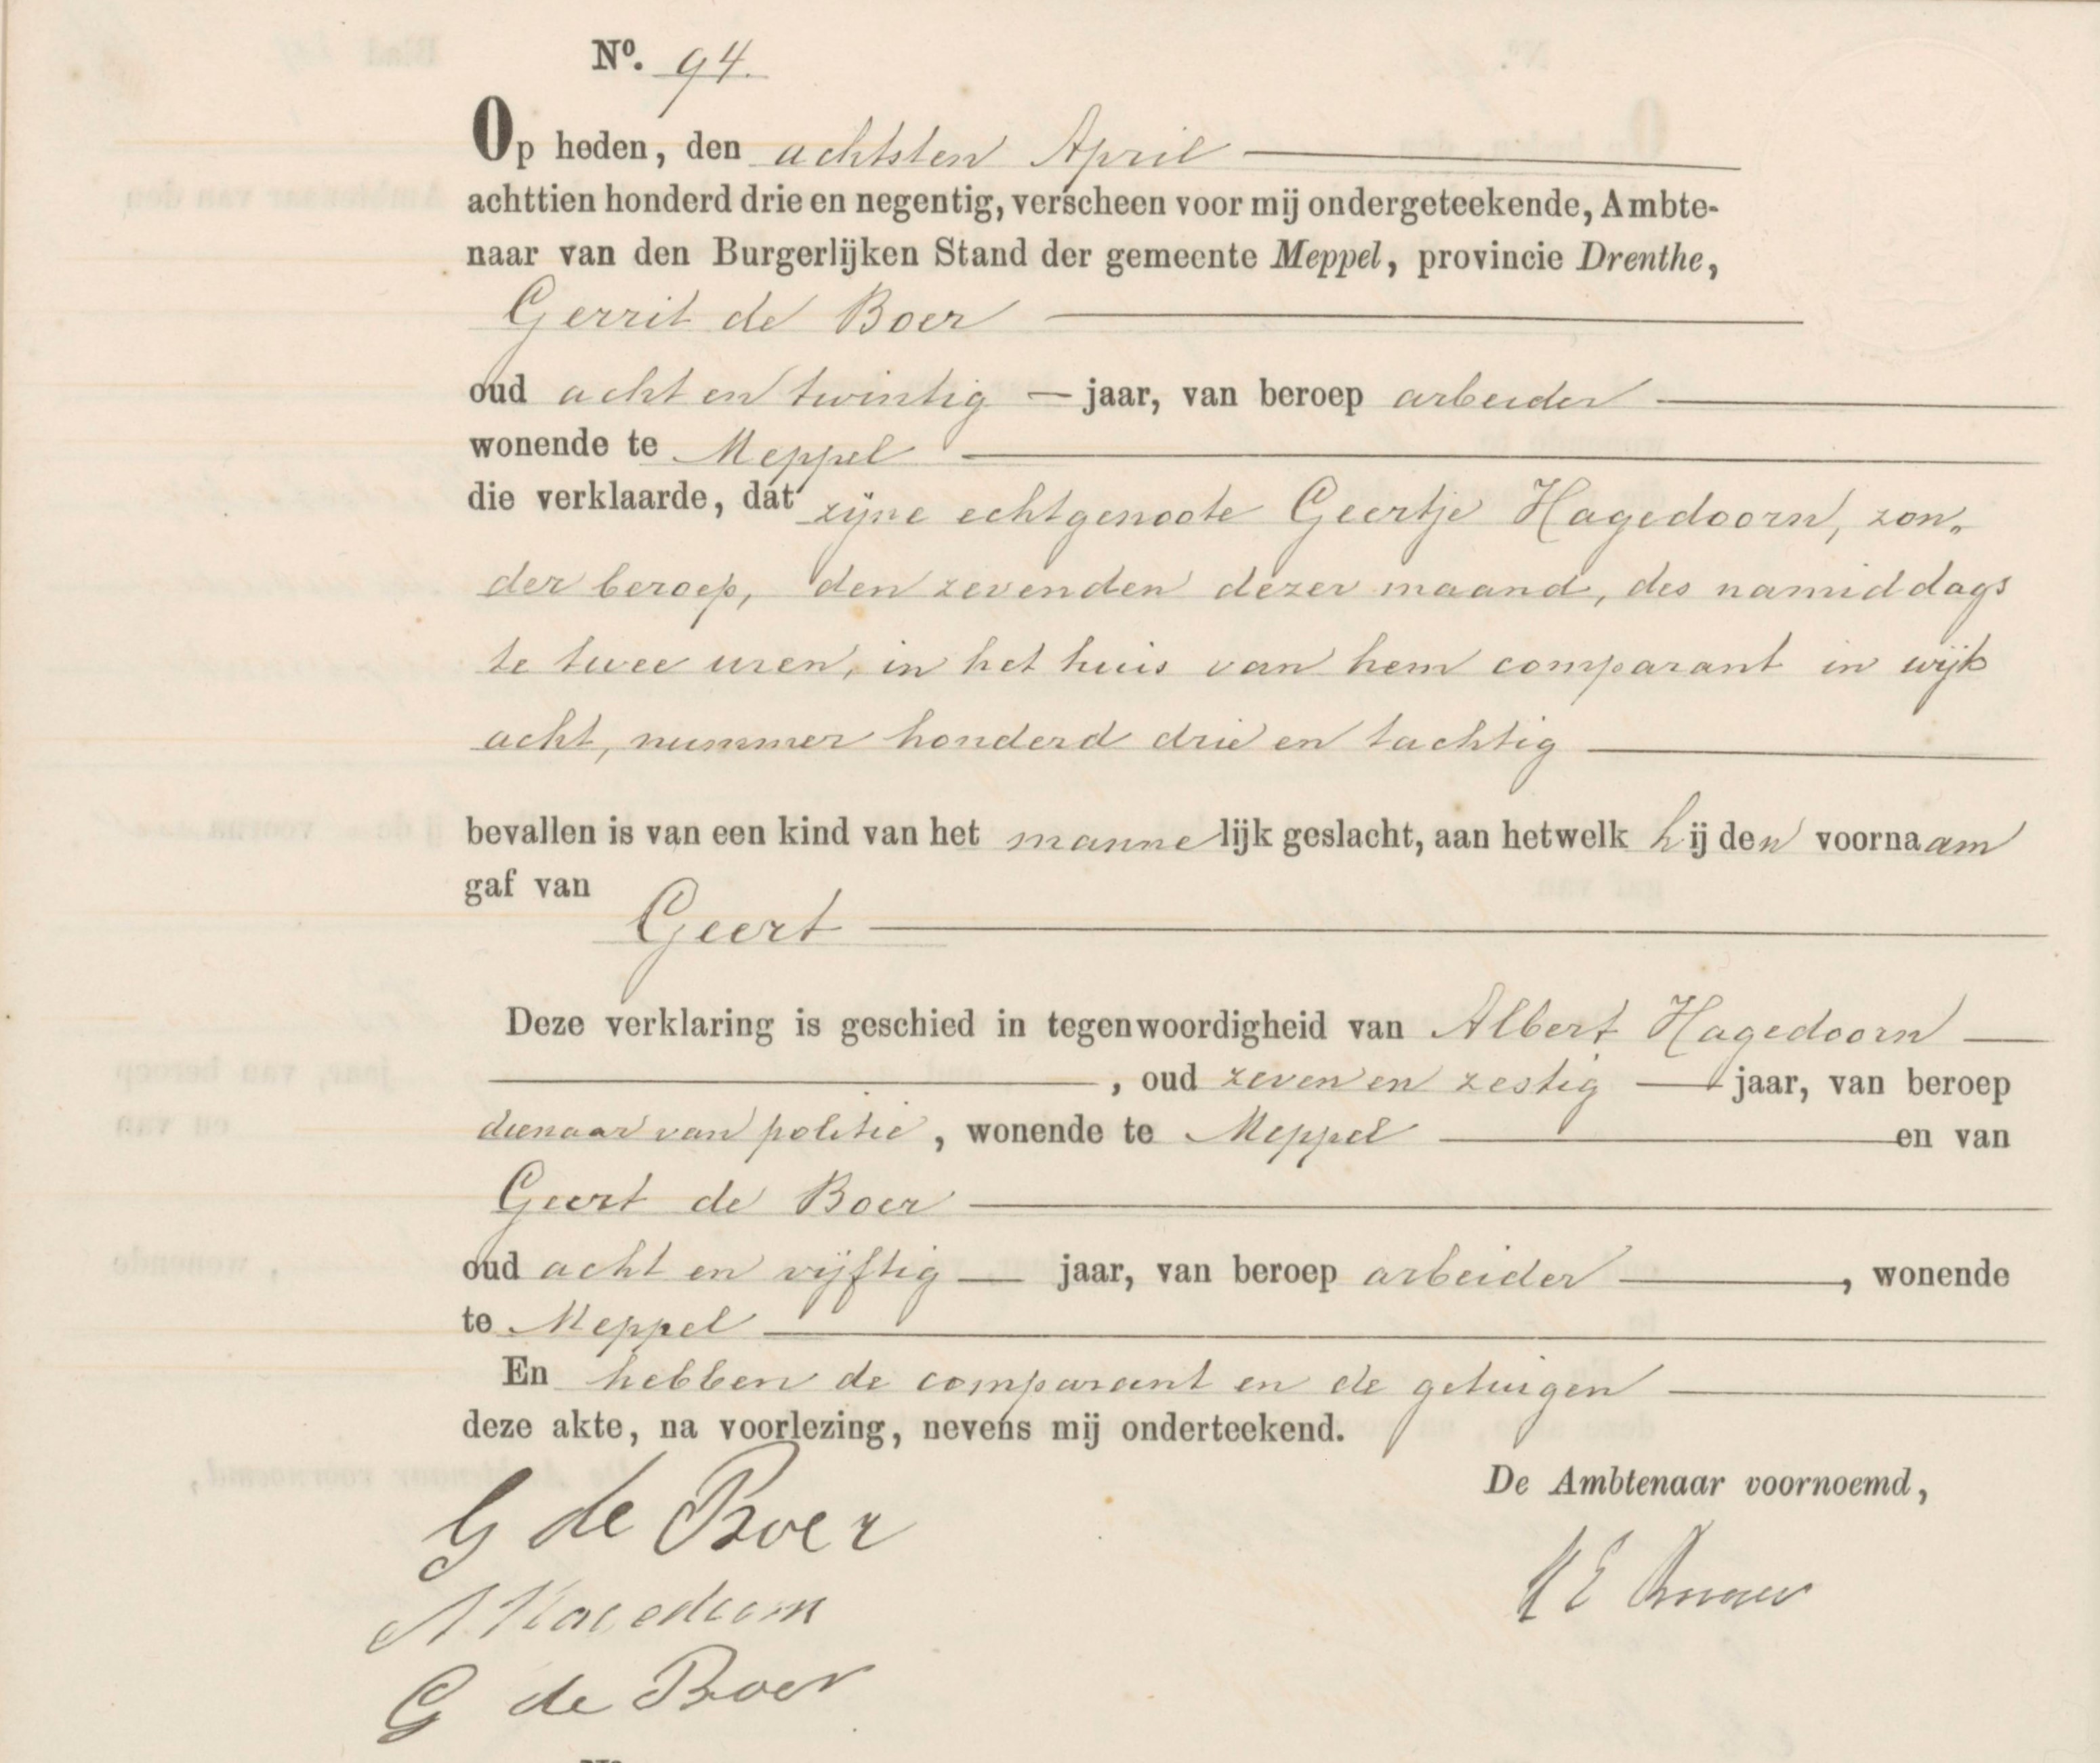 Nº. 94.
Op heden, den achtsten April
achttien honderd drie en negentig, verscheen voor mij ondergeteekende, Ambte-
naar van den Burgerlijken Stand der gemeente Meppel, provincie Drenthe,
Gerrit de Boer
oud acht en twintig jaar, van beroep arbeider
wonende te Meppel
die verklaarde, dat zijne echtgenoote Geertje Hagedoorn, zon„
der beroep, den zevenden dezer maand, des namiddags
te twee uren, in het huis van hem comparant in wijk
acht, nummer honderd drie en tachtig
bevallen is van een kind van het mannelijk geslacht, aan hetwelk hij den voornaam
gaf van
Geert
Deze verklaring is geschied in tegenwoordigheid van Albert Hagedoorn
, oud zeven en zestig jaar, van beroep
dienaar van politie, wonende te Meppel en van
Geert de Boer
oud acht en vijftig jaar, van beroep arbeider, wonende
te Meppel
En hebben de comparant en de getuigen
deze akte, na voorlezing, nevens mij onderteekend.
De Ambtenaar voornoemd,
G de Boer
A Hagedoorn
G de Boer